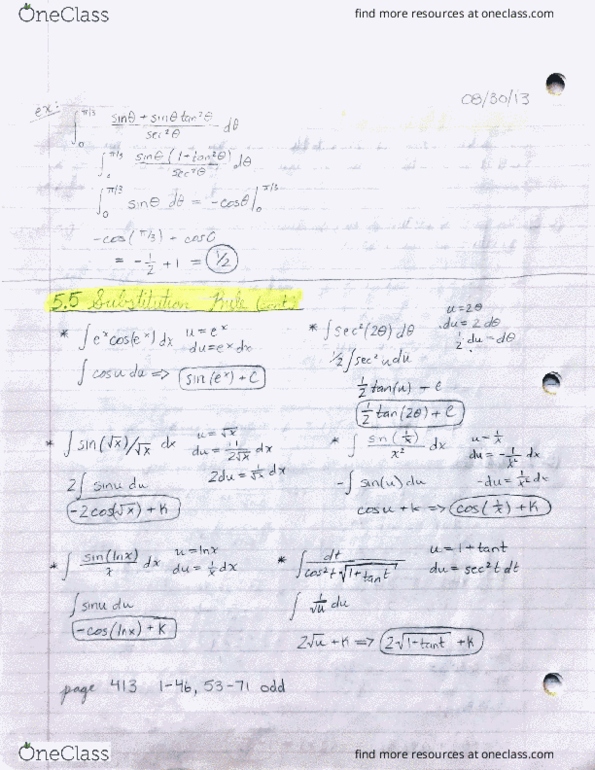 OneClass
find more resources at oneclass.com
08/30/13
ex:
∫₀^π/3 (sinθ + sinθ tan²θ)/sec²θ dθ
∫₀^π/3 sinθ(1-tan²θ)/sec²θ dθ
∫₀^π/3 sinθ dθ = -cosθ|₀^π/3
-cos(π/3) - cos0
= -1/2 + 1 = 1/2
5.5 Substitution Rule (cont)
* ∫e^x cos(e^x) dx u=e^x
du=e^x dx
∫cosu du => sin(e^x)+C
* ∫sec²(2θ)dθ u=2θ
du=2dθ
1/2 du=dθ
1/2∫sec²u du
1/2 tan(u) + C
1/2 tan(2θ) + C
* ∫sin(√x)/√x dx u=√x
du=1/(2√x) dx
2du=1/√x dx
2∫sinu du
-2cos(√x)+K
* ∫ sin(1/x)/x² dx u=1/x
du=-1/x² dx
-du=1/x² dx
-∫sin(u)du
cosu+K => cos(1/x)+K
* ∫ sin(lnx)/x dx u=lnx
du=1/x dx
∫sinu du
-cos(lnx)+K
* ∫ dt/(cos²t√(1+tant)) u=1+tant
du=sec²t dt
∫ 1/√u du
2√u+K => 2√(1-tant)+K
page 413 1-46, 53-71 odd
OneClass
find more resources at oneclass.com